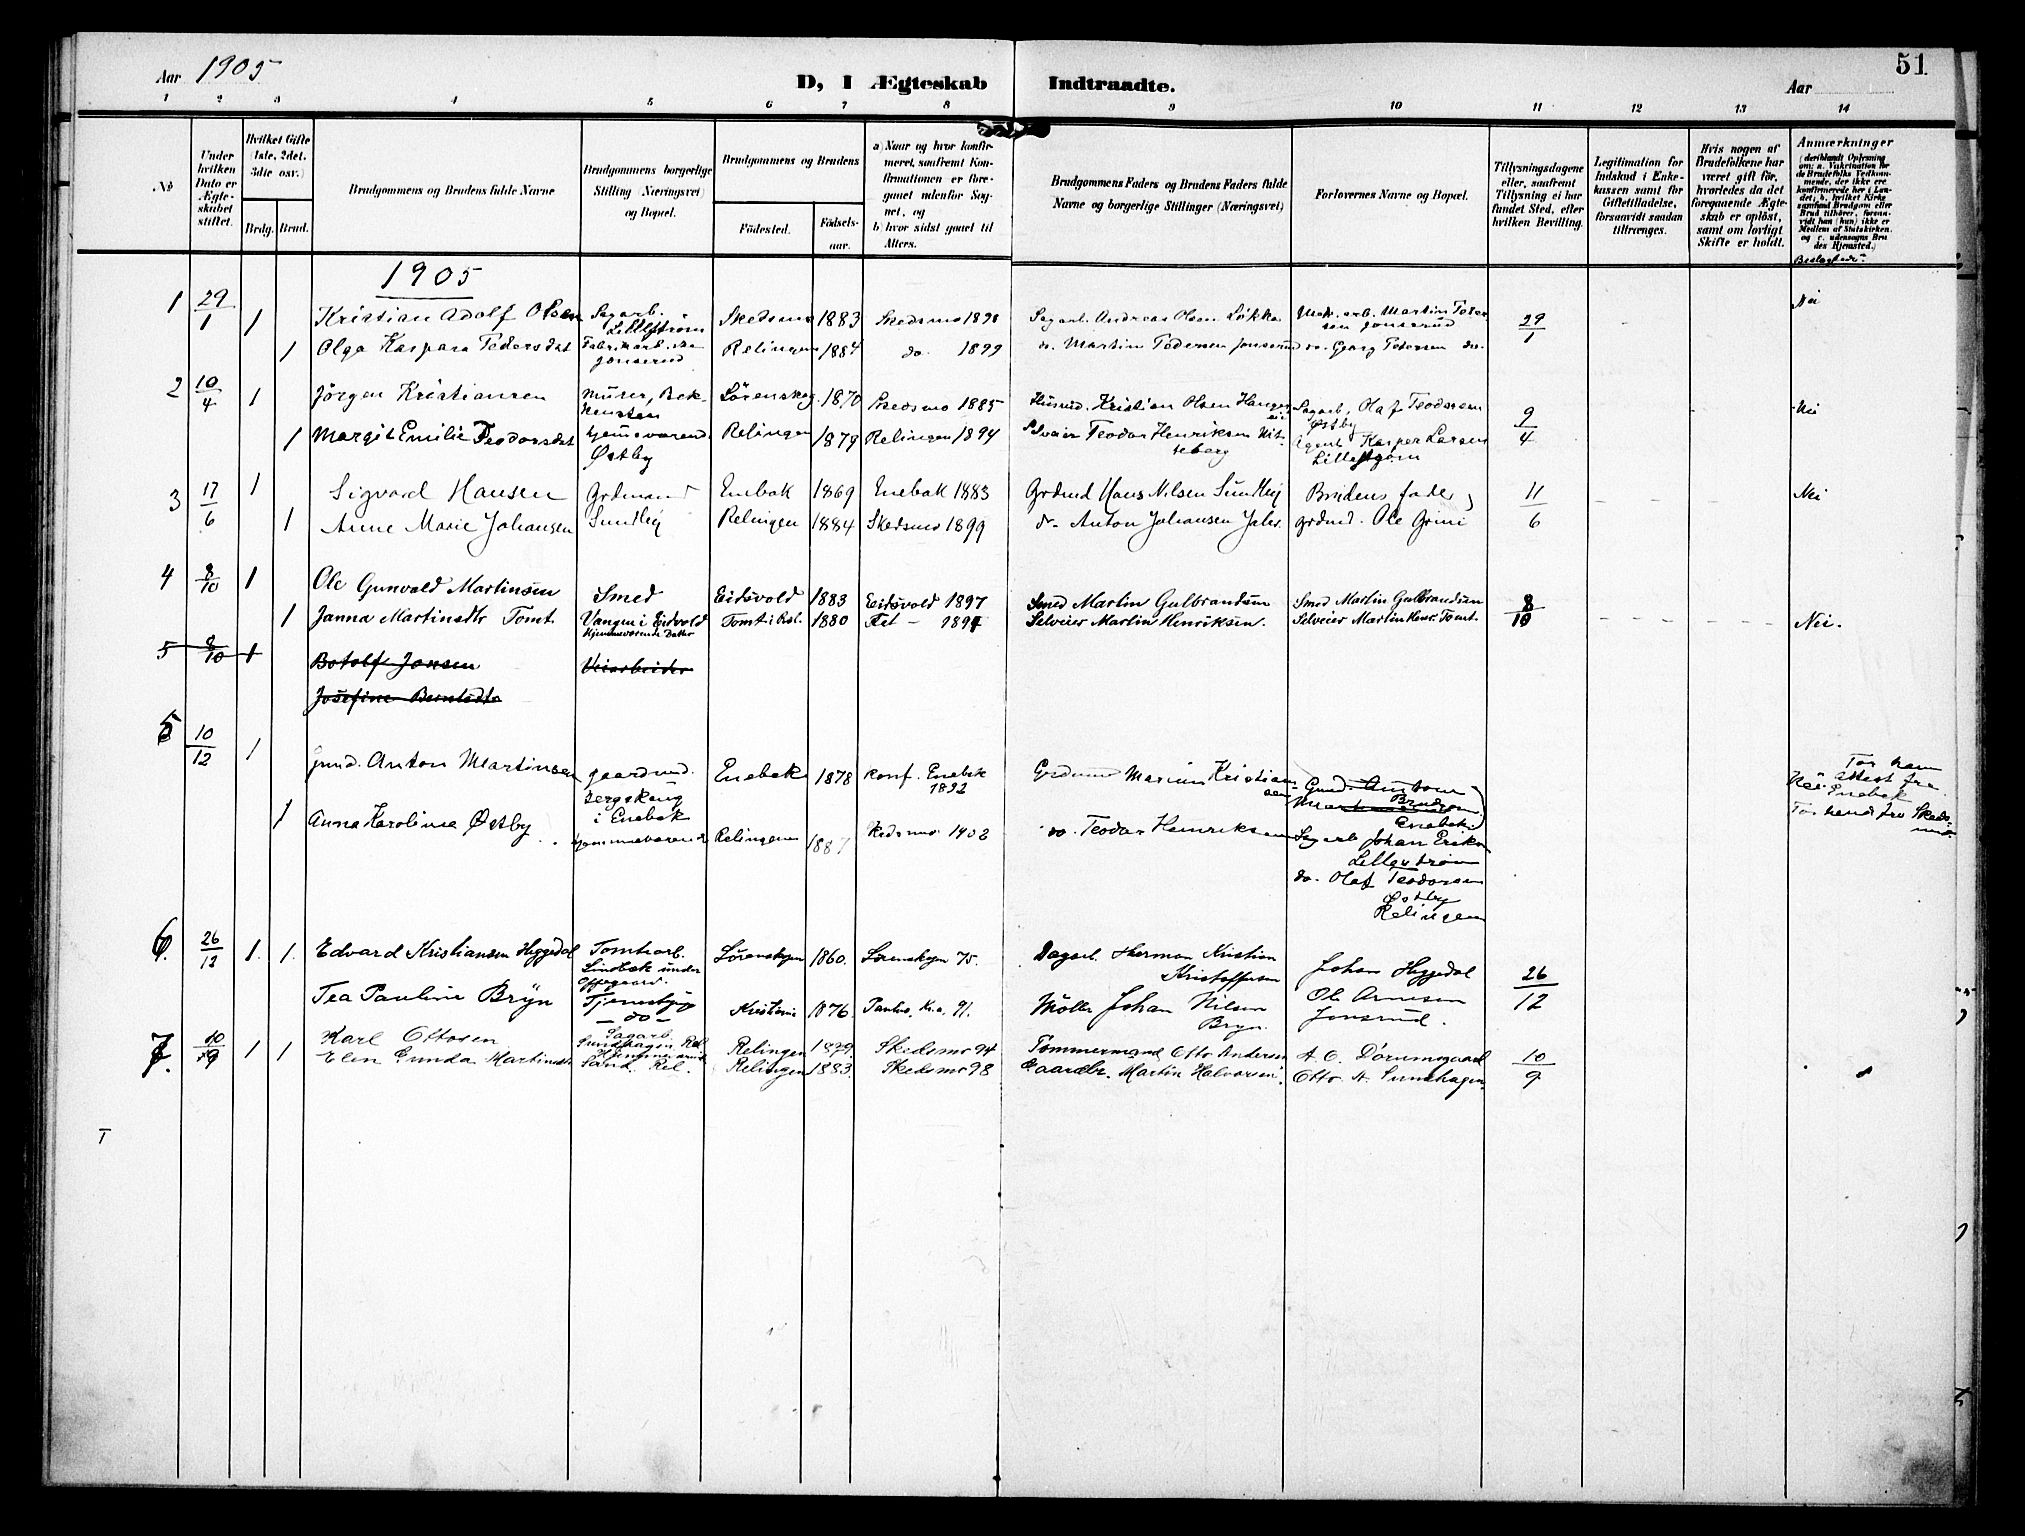 Aar 1905
D, I Ægteskab Indtraadte.
Aar
51
1 2 3 4 5 6 7 8 9 10 11 12 13 14
No
Under hvilken Dato er Ægteskabet stiftet.
Hvilket Gifte (1ste, 2det, 3die osv.)
Brdg. Brud.
Brudgommens og Brudens fulde Navne
Brudgommens borgerlige Stilling (Næringsvei) og Bopæl.
Brudgommens og Brudens
Födested. Födsels-aar.
a) Naar og hvor konfirmeret, saafremt Konfirmationen er foregaaet udenfor Sognet, og
b) hvor sidst gaaet til Alters.
Brudgommens Faders og Brudens Faders fulde Navne og borgerlige Stillinger (Næringsvei)
Forlovernes Navne og Bopæl.
Tillysningsdagene eller, saafremt Tillysning ei har fundet Sted, efter hvilken Bevilling.
Legitimation for Indskud i Enkekassen samt for Giftetilladelse, forsaavidt saadan tiltrænges.
Hvis nogen af Brudefolkene har været gift för, hvorledes da det foregaaende Ægteskab er oplöst, samt om lovligt Skifte er holdt.
Anmærkninger
(deriblandt Oplysning om: a. Vakcination for de Brudefolks Vedkommende, der ikke ere konfirmerede her i Landet; b. hvilket Kirkesamfund Brudgom eller Brud tilhörer, forsaavidt han (hun) ikke er Medlem af Statskirken. og c. udensogns Brudes Hjemsted.)
Beslægtede?
1905
1 29/1 1 Kristian Adolf Olsen Sagarb. Lillestrøm Skedsmo 1883 Skedsmo 1898 Sagarb. Andreas Olsen Løkka Mek. arb. Martin Petersen Jonserud 29/1 - - Nei
1 Olga Kaspara Pedersdat Fabrikarb.ske Jonserud Relingen 1884 do. 1899 do. Martin Pedersen Jonserud do. Georg Petersen do.
2 10/4 1 Jörgen Kristiansen Murer, Bekkensten Lörenskog 1870 Skedsmo 1885 Husmd. Kristian Olsen Hangereie Sagarb. Olaf Teodorsen Østby 9/4 Nei
1 Margit Emilie Teodorsdat hjemmeværend Østby Relingen 1879 Relingen 1894 Selveier Teodor Henriksen Nitteberg Agent Kasper Larsen Lillestrøm
3 17/6 1 Sigvard Hansen Grdmand Sundby Enebak 1869 Enebak 1883 Grdmd Hans Nilsen Sundby Brudens fader 11/6 - - - - Nei
1 Anne Marie Johansen Relingen 1884 Skedsmo 1899 do Anton Johansen grdmd. Ole Grini
4 8/10 1 Ole Gunvald Martinsen Smed Eidsvold 1883 Eidsvold 1897 Smed Martin Gulbrandsen Smed Martin Gulbrandsen 8/10
1 Janna Martinsdtr Tomt. Vangen i Eidsvold Hjemmeværende Datter Tomt i Rel. 1880 Fet - 1894 Selveier Martin Henriksen. Selveier Martin Henr. Tomt. - - - - Nei.
5 8/10 1 Botolf Jonsen Veiarbeider
Josefine Berntsdtr
5 10/12 1 Grmd. Anton Martinsen gaardmd. Bergskaug i Enebak Enebak 1878 Konf. Enebak 1892 Grdmand Marius Kristiansen Grmd. Anton Brudgom Enebak Nei For ham Attest fra Enebak
1 Anna Karoline Østby hjemmeværende Relingen 1887 Skedsmo 1902 do. Teodor Henriksen Sagarb Johan Eriksen Lillestrøm For hende fra Skedsmo
do. Olaf Teodorsen Østby Relingen
6. 26/12 1. 1. Edvard Kristiansen Heggedal Tomtearb. Lindbak under Oppegaard. Lørenskogen 1860. Lørenskogen 75. Dagarb. Herman Kristian Kristoffersen Johan Heggedal 26/12
Tea Pauline Bryn Tjenestepige - do - Kristiania 1876 Paulus Kr.a. 91. Møller Johan Nilsen Bryn. Ole Arnesen Jonsrud.
7. 10/9 1 1 Karl Ottosen Sagarb. Sundhagen Rel. Relingen 1879. Skedsmo 94 Tømmermand Otto Andersen A. O. Dørumsgaard 10/9
Elen Gunda Martinsdtr Hjemmeværend Sand. Rel. Relingen 1883. Skedsmo 98 Gaardbr. Martin Halvorsen. Otto A. Sundhagen.